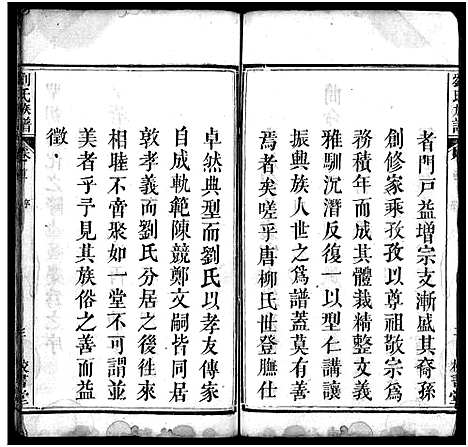 者門戶益增宗支漸盛其裔孫
創修家乘孜孜以尊祖敬宗爲
務積年而成其體裁精整文義
雅馴沉潛反復一以型仁講讓
振興族人世之爲譜蓋鮮有若
焉者矣嗟乎唐柳氏世登膴仕
卓然典型而劉氏以孝友傳家
自成軌範陳競鄭文嗣皆屢世
敦孝義而劉氏分居之後往來
相睦不啻聚如一堂不可謂並
美者乎於見其族俗之善而益
徵
劉氏族譜